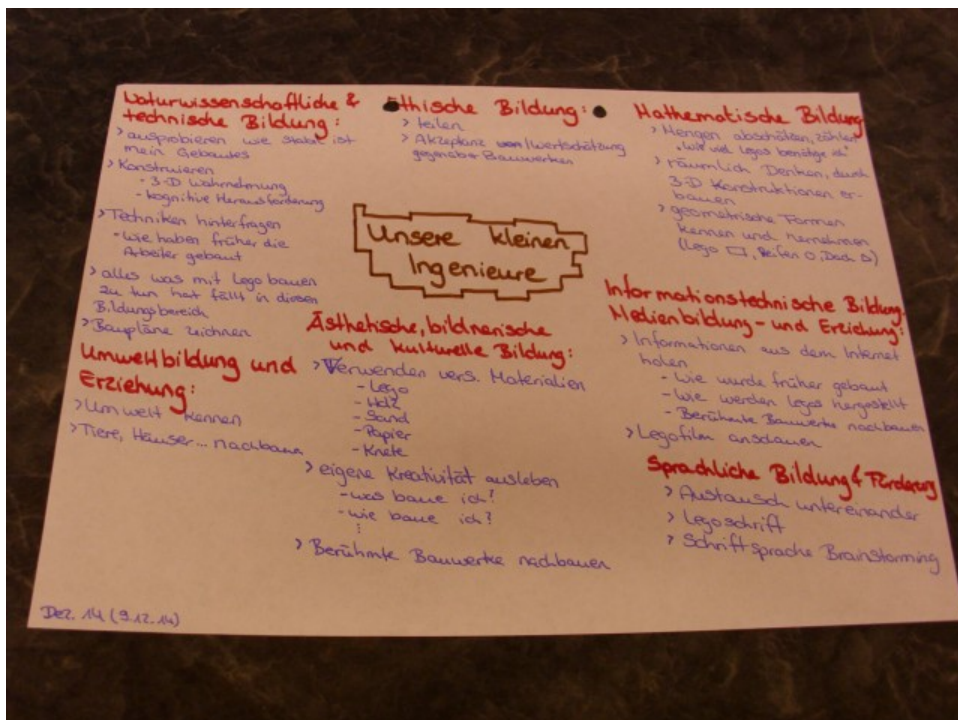 Naturwissenschaftliche &
technische Bildung:
> ausprobieren wie stabil ist
mein Gebautes
> Konstruieren
- 3-D Wahrnehmung
- kognitive Herausforderung
> Techniken hinterfragen
- wie haben früher die
Arbeiter gebaut
> alles was mit Lego bauen
zu tun hat fällt in diesen
Bildungsbereich
> Baupläne zeichnen
Umweltbildung und
Erziehung:
> Umwelt kennen
> Tiere, Häuser... nachbauen
Ethische Bildung:
> teilen
> Akzeptanz / Wertschätzung
gegenüber Bauwerken
Unsere kleinen
Ingenieure
Ästhetische, bildnerische
und kulturelle Bildung:
> Verwenden vers. Materialien
- Lego
- Holz
- Sand
- Papier
- Knete
> eigene Kreativität ausleben
- was baue ich?
- wie baue ich?
⋮
> Berühmte Bauwerke nachbauen
Mathematische Bildung
> Mengen abschätzen, zählen
"Wie viel Legos benötige ich"
> räumlich Denken, durch
3-D Konstruktionen er-
bauen
> geometrische Formen
kennen und hernehmen
(Lego ▭, Reifen O, Dach Δ)
Informationstechnische Bildung,
Medienbildung- und Erziehung:
> Informationen aus dem Internet
holen
- Wie wurde früher gebaut
- Wie werden Legos hergestellt
- Berühmte Bauwerke nachbauen
> Legofilm anschauen
Sprachliche Bildung & Förderung
> Austausch untereinander
> Legoschrift
> Schriftsprache Brainstorming
Dez. 14 (9.12.14)